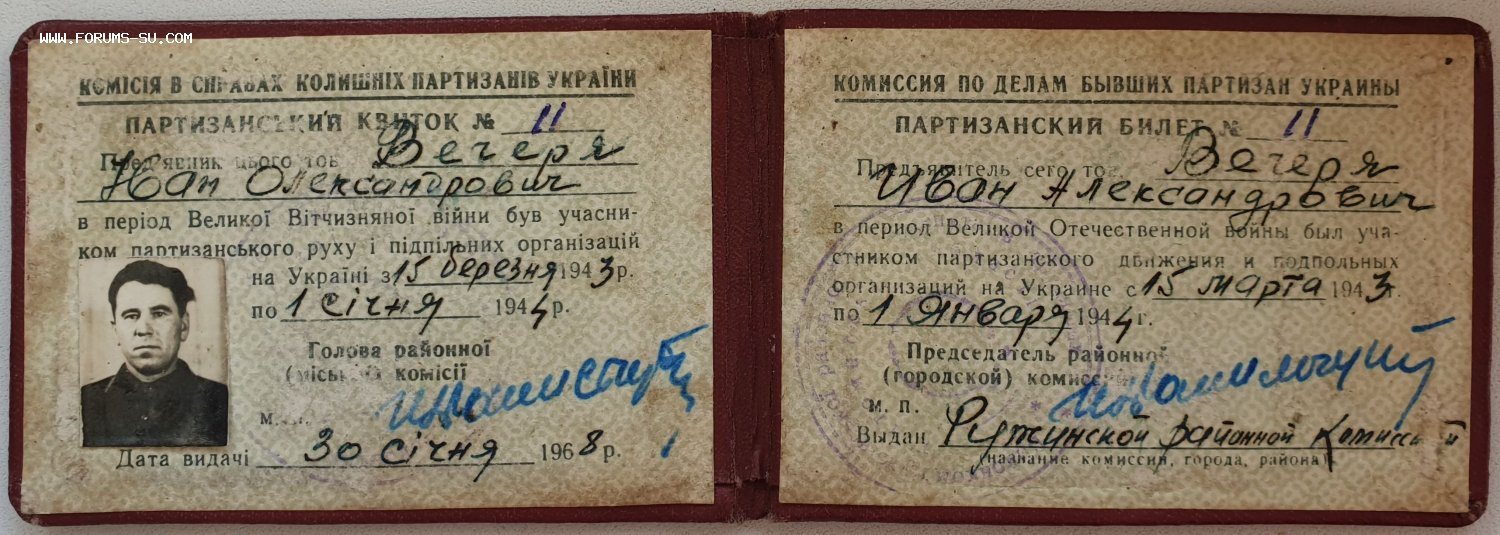 www.forums-su.com
КОМІСІЯ В СПРАВАХ КОЛИШНІХ ПАРТИЗАНІВ УКРАЇНИ
ПАРТИЗАНСЬКИЙ КВИТОК № 11
Пред'явник цього тов. Вечеря
Іван Олександрович
в період Великої Вітчизняної війни був учасни-
ком партизанського руху і підпільних організацій
на Україні з 15 березня 1943 р.
по 1 січня 1944 р.
Голова районної
(міської) комісії
М. П.
Дата видачі 30 січня 1968 р.
КОМИССИЯ ПО ДЕЛАМ БЫВШИХ ПАРТИЗАН УКРАИНЫ
ПАРТИЗАНСКИЙ БИЛЕТ № 11
Предъявитель сего тов. Вечеря
Иван Александрович
в период Великой Отечественной войны был уча-
стником партизанского движения и подпольных
организаций на Украине с 15 марта 1943 г.
по 1 Января 1944 г.
Председатель районной
(городской) комиссии
М. П.
Выдан Ружинской районной комиссией
(название комиссии, города, района)